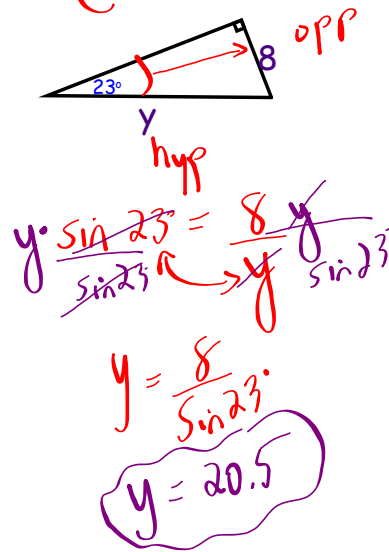 opp
8
23°
y
hyp
y · sin 23 / sin 23 = 8 / y y / sin 23
y = 8 / sin 23°
y = 20.5